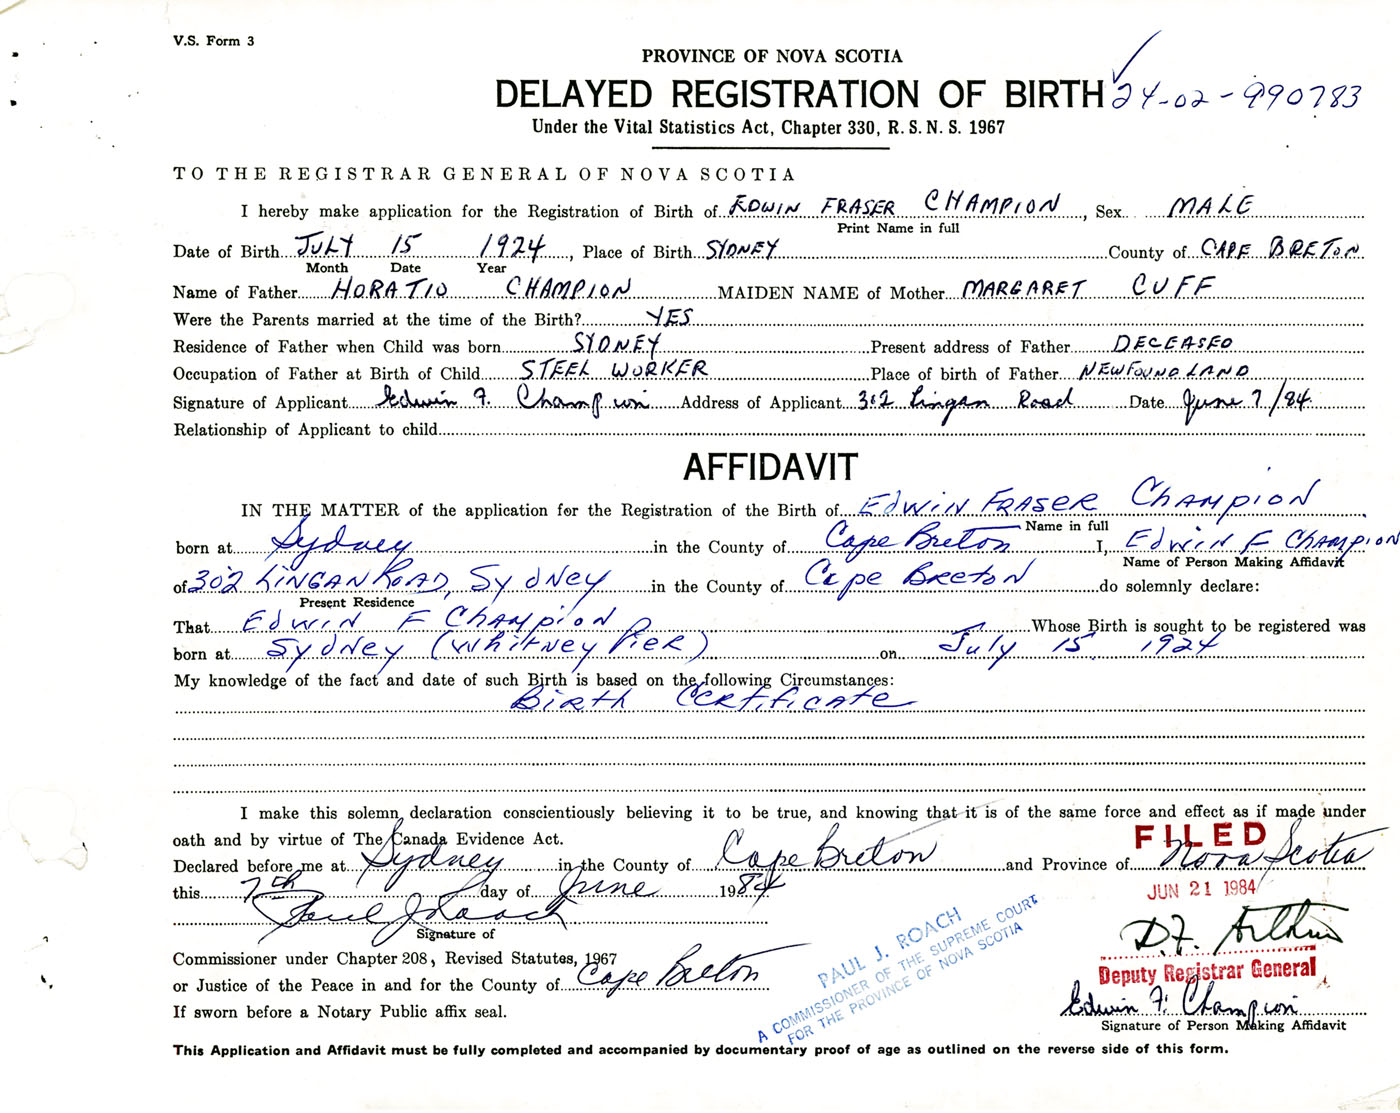 V.S. Form 3
PROVINCE OF NOVA SCOTIA
DELAYED REGISTRATION OF BIRTH 24-02-990783
Under the Vital Statistics Act, Chapter 330, R. S. N. S. 1967
TO THE REGISTRAR GENERAL OF NOVA SCOTIA
I hereby make application for the Registration of Birth of EDWIN FRASER CHAMPION, Sex MALE
Print Name in full
Date of Birth JULY 15 1924, Place of Birth SYDNEY County of CAPE BRETON
Month Date Year
Name of Father HORATIO CHAMPION MAIDEN NAME of Mother MARGARET CUFF
Were the Parents married at the time of the Birth? YES
Residence of Father when Child was born SYDNEY Present address of Father DECEASED
Occupation of Father at Birth of Child STEEL WORKER Place of birth of Father NEWFOUNDLAND
Signature of Applicant Edwin F. Champion Address of Applicant 302 Lingan Road Date June 7/84
Relationship of Applicant to child
AFFIDAVIT
IN THE MATTER of the application for the Registration of the Birth of EDWIN FRASER CHAMPION
Name in full
born at Sydney in the County of Cape Breton I, EDWIN F CHAMPION
Name of Person Making Affidavit
of 302 LINGAN ROAD, SYDNEY in the County of Cape Breton do solemnly declare:
Present Residence
That EDWIN F CHAMPION Whose Birth is sought to be registered was
born at SYDNEY (WHITNEY PIER) on July 15 1924
My knowledge of the fact and date of such Birth is based on the following Circumstances:
BIRTH CERTIFICATE
I make this solemn declaration conscientiously believing it to be true, and knowing that it is of the same force and effect as if made under
oath and by virtue of The Canada Evidence Act.
FILED
Declared before me at Sydney in the County of Cape Breton and Province of Nova Scotia
this 7th day of June 1984
JUN 21 1984
Paul J Roach
Signature of
D.F. Arthur
Deputy Registrar General
PAUL J. ROACH
A COMMISSIONER OF THE SUPREME COURT
FOR THE PROVINCE OF NOVA SCOTIA
Commissioner under Chapter 208, Revised Statutes, 1967
or Justice of the Peace in and for the County of Cape Breton
If sworn before a Notary Public affix seal.
Edwin F. Champion
Signature of Person Making Affidavit
This Application and Affidavit must be fully completed and accompanied by documentary proof of age as outlined on the reverse side of this form.